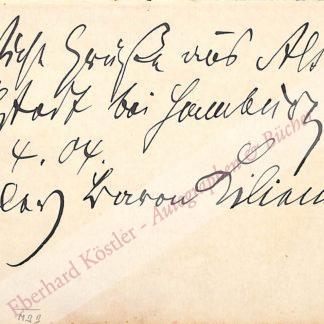 liche Grüße aus Alt
stadt bei Hamburg
4. 04.
Baron Lilien
Eberhard Köstler - Autographen & Bücher